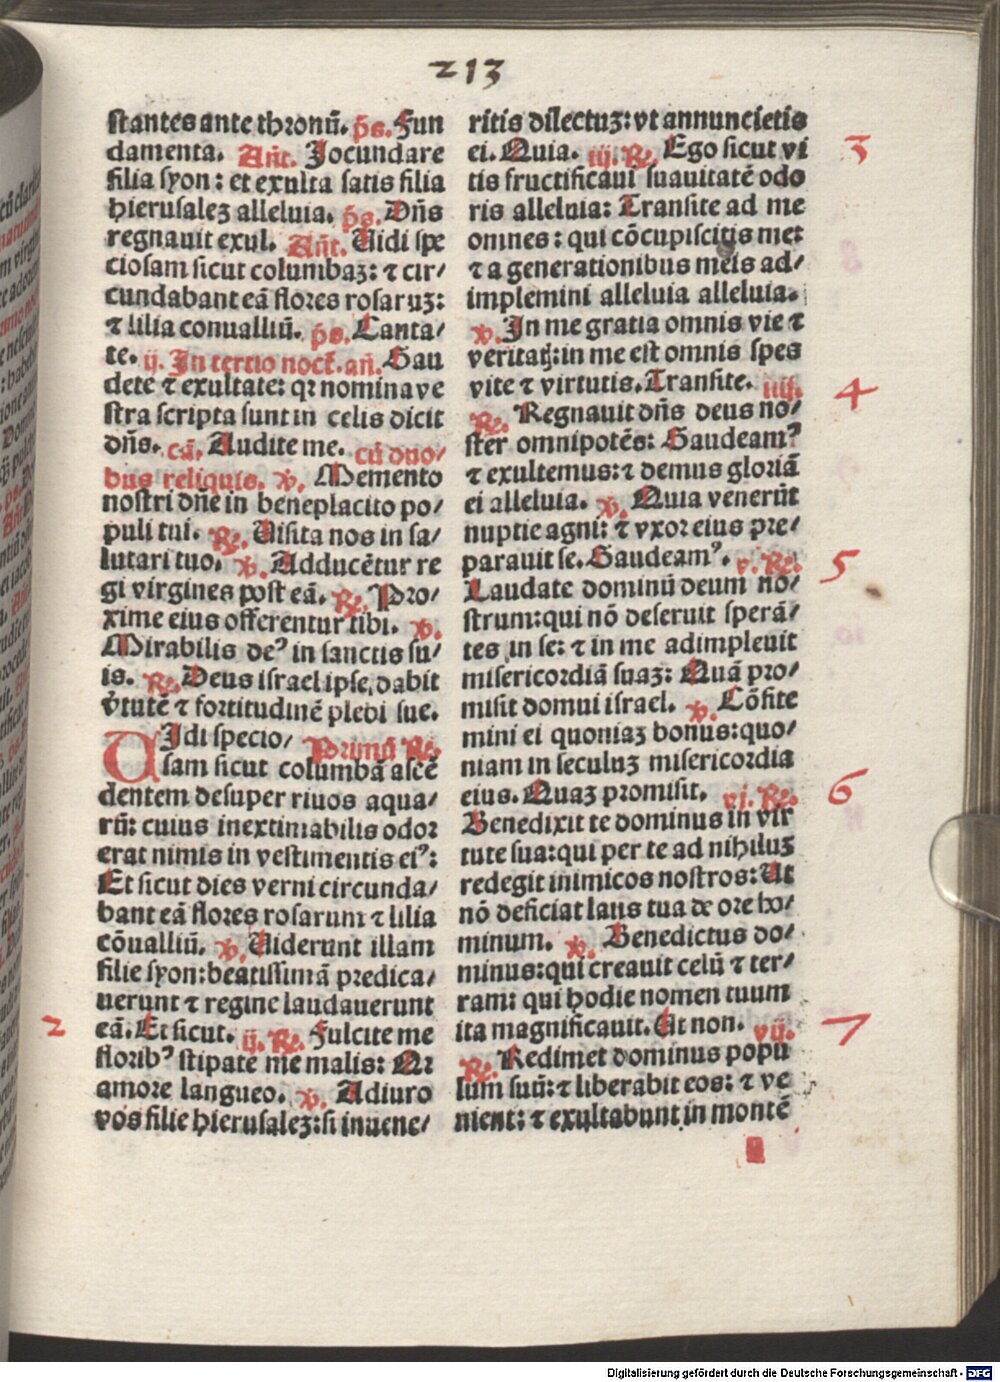 213
stantes ante thronū. p̄s. Fun
damenta. Añt. Jocundare
filia syon: et exulta satis filia
hierusalez alleluia. p̄s. Dñs
regnauit exul. Añt. Uidi spe
ciosam sicut columbaz: ⁊ cir/
cundabant eā flores rosaruz:
⁊ lilia conualliū. p̄s. Canta/
te. ij. In tertio noct̄. añ. Gau
dete ⁊ exultate: qꝛ nomina ve
stra scripta sunt in celis dicit
dñs. cā. Audite me. cū duo/
bus reliquis. ℣. Memento
nostri dñe in beneplacito po/
puli tui. ℟. Uisita nos in sa/
lutari tuo. ℣. Adducētur re
gi virgines post eā. ℟. Pro/
xime eius offerentur tibi. ℣.
Mirabilis deꝰ in sanctis su/
is. ℟. Deus israel ipse dabit
v̄tutē ⁊ fortitudinē plebi sue.
UIdi specio/ Primū ℟.
sam sicut columbā ascē
dentem desuper riuos aqua/
rū: cuius inextimabilis odor
erat nimis in vestimentis eiꝰ:
Et sicut dies verni circunda/
bant eā flores rosarum ⁊ lilia
cōualliū. ℣. Uiderunt illam
filie syon: beatissimā predica/
uerunt ⁊ regine laudauerunt
2 eā. Et sicut. ij. ℟. Fulcite me
floribꝰ stipate me malis: Qꝛ
amore langueo. ℣. Adiuro
vos filie hierusalez: si inuene/
ritis dilectuz: vt annuncietis
ei. Quia. iij. ℟. Ego sicut vi 3
tis fructificaui suauitatē odo
ris alleluia: Transite ad me
omnes: qui cōcupiscitis me:
⁊ a generationibus meis ad/
implemini alleluia alleluia.
℣. In me gratia omnis vie ⁊
veritatꝭ: in me est omnis spes
vite ⁊ virtutis. Transite. iiij. 4
℟. Regnauit dñs deus no/
ster omnipotēs: Gaudeamꝰ
⁊ exultemus: ⁊ demus gloriā
ei alleluia. ℣. Quia venerūt
nuptie agni: ⁊ vxor eius pre/
parauit se. Gaudeamꝰ. v. ℟. 5
Laudate dominū deum no/
strum: qui nō deseruit sperā/
tes in se: ⁊ in me adimpleuit
misericordiā suaz: Quā pro/
misit domui israel. ℣. Cōfite
mini ei quoniaz bonus: quo/
niam in seculuz misericordia
eius. Quaz promisit. vj. ℟. 6
Benedixit te dominus in vir
tute sua: qui per te ad nihiluz
redegit inimicos nostros: Ut
nō deficiat laus tua de ore ho/
minum. ℣. Benedictus do/
minus: qui creauit celū ⁊ ter/
ram: qui hodie nomen tuum
ita magnificauit. Ut non. vij. 7
℟. Redimet dominus popu
lum suū: ⁊ liberabit eos: ⁊ ve
nient: ⁊ exultabunt in montē
Digitalisierung gefördert durch die Deutsche Forschungsgemeinschaft - DFG